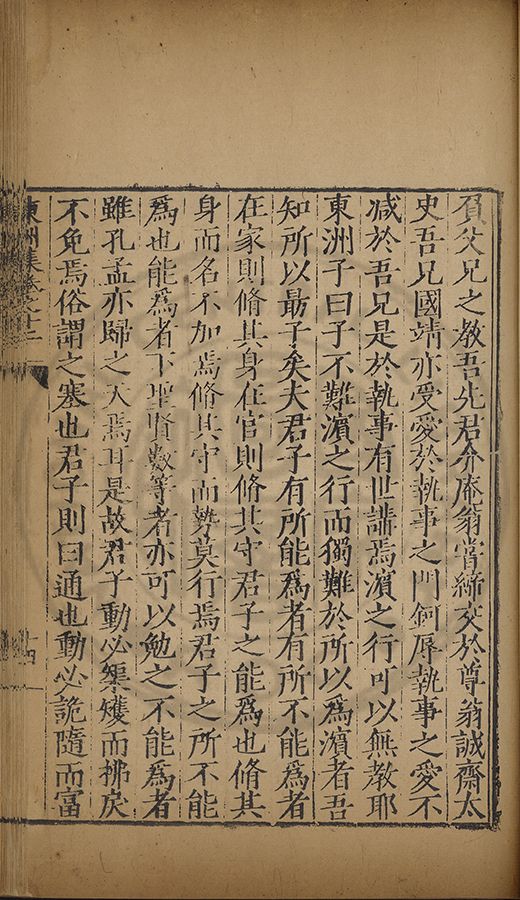 負父兄之教吾先君介庵翁嘗締交於尊翁誠齋太
史吾兄國靖亦受愛於執事之門鉶辱執事之愛不
减於吾兄是於執事有世講焉濵之行可以無教耶
東洲子曰子不難濵之行而獨難於所以為濵者吾
知所以最子矣夫君子有所能為者有所不能為者
在家則脩其身在官則脩其守君子之能為也脩其
身而名不加焉脩其守而勢莫行焉君子之所不能
為也能為者下聖賢數等者亦可以勉之不能為者
雖孔孟亦歸之天焉耳是故君子動必榘矱而拂戾
不免焉俗謂之塞也君子則曰通也動必詭隨而富
東洲集卷之十二
十四